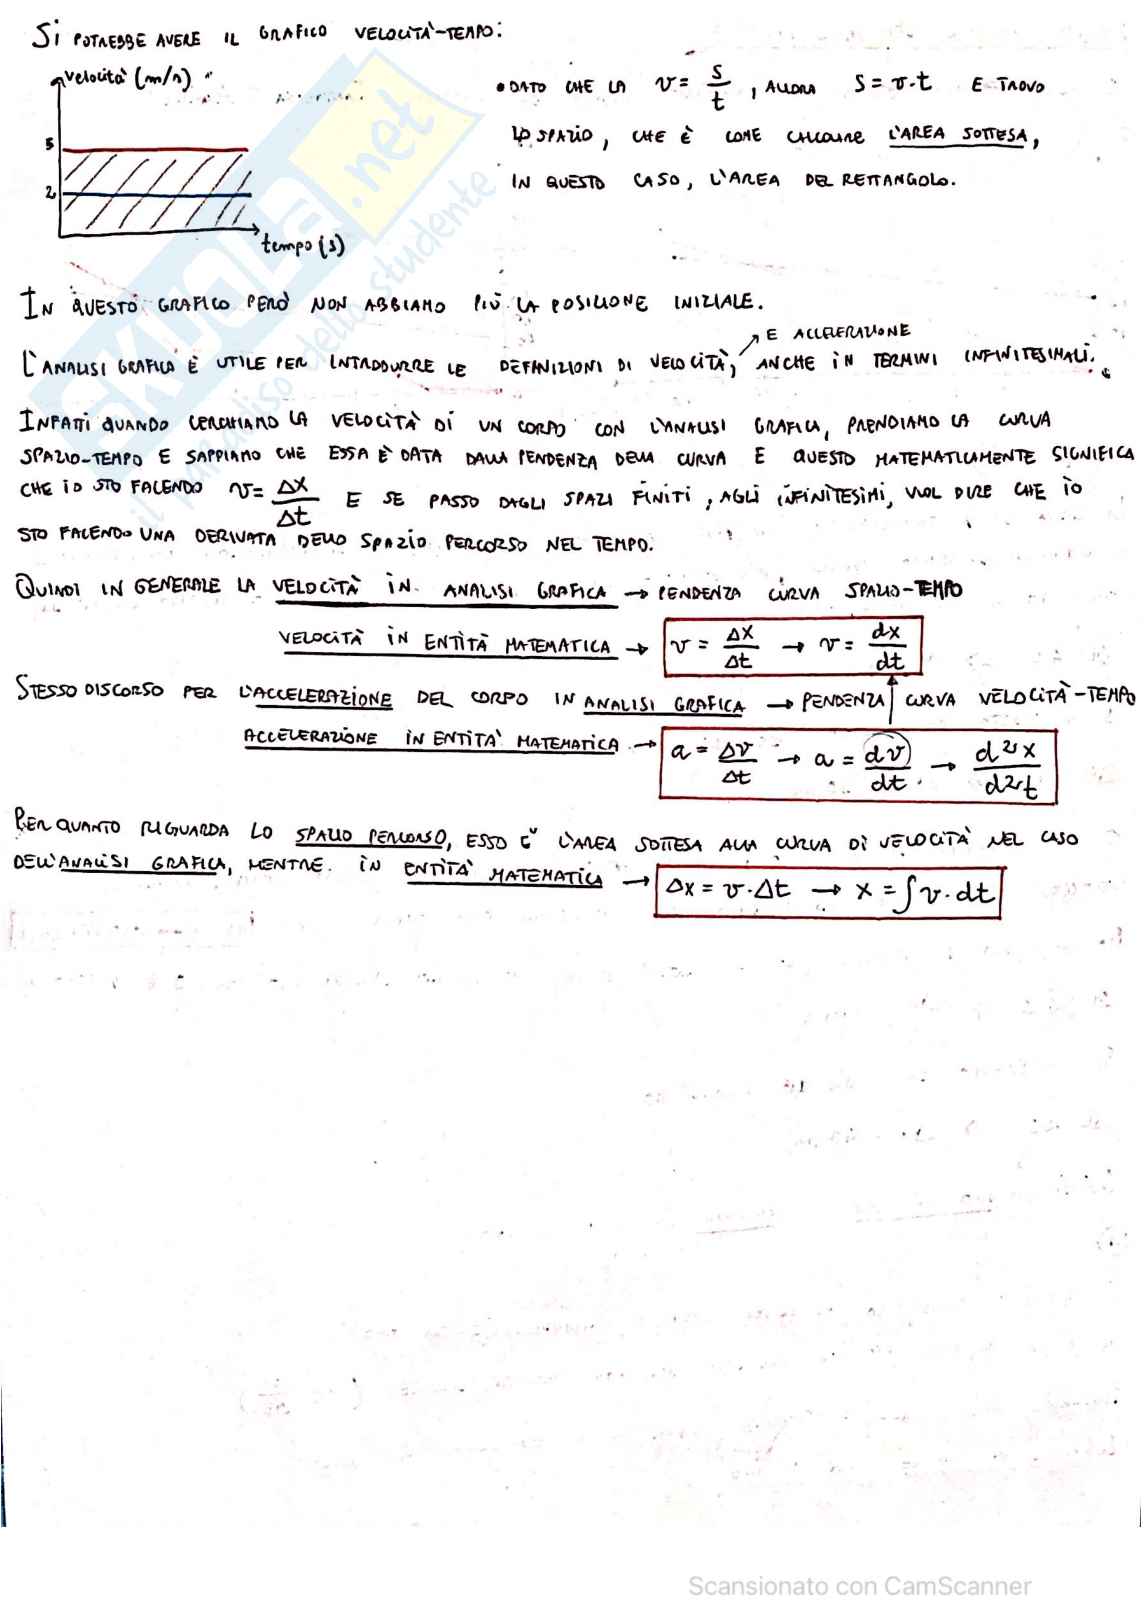 Si POTREBBE AVERE IL GRAFICO VELOCITÀ-TEMPO:
velocità (m/s)
5
2
tempo (s)
• DATO CHE LA v = s/t , ALLORA s = v·t E TROVO
LO SPAZIO, CHE È COME CALCOLARE L'AREA SOTTESA,
IN QUESTO CASO, L'AREA DEL RETTANGOLO.
IN QUESTO GRAFICO PERÒ NON ABBIAMO PIÙ LA POSIZIONE INIZIALE.
E ACCELERAZIONE
L'ANALISI GRAFICA È UTILE PER INTRODURRE LE DEFINIZIONI DI VELOCITÀ, ANCHE IN TERMINI INFINITESIMALI.
INFATTI QUANDO CERCHIAMO LA VELOCITÀ DI UN CORPO CON L'ANALISI GRAFICA, PRENDIAMO LA CURVA
SPAZIO-TEMPO E SAPPIAMO CHE ESSA È DATA DALLA PENDENZA DELLA CURVA E QUESTO MATEMATICAMENTE SIGNIFICA
CHE IO STO FACENDO v = Δx/Δt E SE PASSO DAGLI SPAZI FINITI, AGLI INFINITESIMI, VUOL DIRE CHE IO
STO FACENDO UNA DERIVATA DELLO SPAZIO PERCORSO NEL TEMPO.
QUINDI IN GENERALE LA VELOCITÀ IN ANALISI GRAFICA → PENDENZA CURVA SPAZIO-TEMPO
VELOCITÀ IN ENTITÀ MATEMATICA → v = Δx/Δt → v = dx/dt
STESSO DISCORSO PER L'ACCELERAZIONE DEL CORPO IN ANALISI GRAFICA → PENDENZA CURVA VELOCITÀ-TEMPO
ACCELERAZIONE IN ENTITÀ MATEMATICA → a = Δv/Δt → a = dv/dt → d²x/d²t
PER QUANTO RIGUARDA LO SPAZIO PERCORSO, ESSO È L'AREA SOTTESA ALLA CURVA DI VELOCITÀ NEL CASO
DELL'ANALISI GRAFICA, MENTRE IN ENTITÀ MATEMATICA → Δx = v·Δt → x = ∫v·dt
SKUOLA.net
il paradiso dello studente
Scansionato con CamScanner